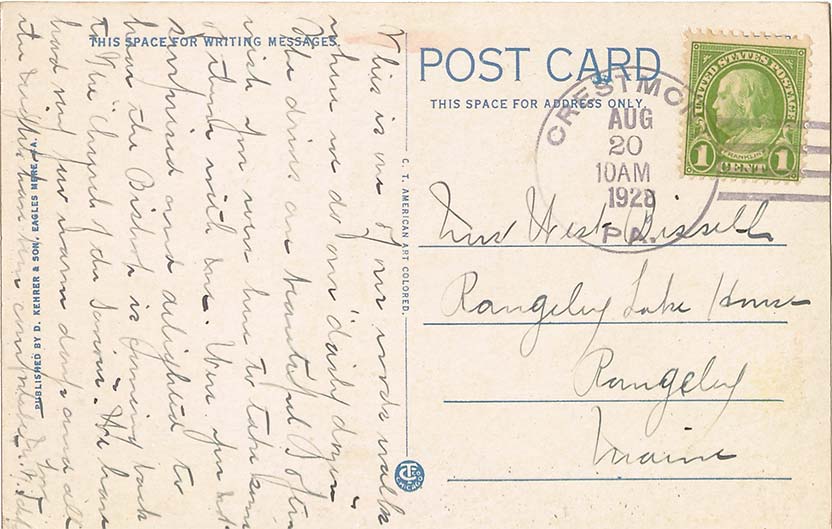 THIS SPACE FOR WRITING MESSAGES.
This is one of our woods walks
where we do our "daily dozen"
The drives are beautiful & often
wish you were here to take some
of them with me. Were you not
surprised and delighted to
hear the Bishop is coming back
to the Church of du Saviour. We have
had very few warm days and all
PUBLISHED BY D. KEHRER & SON, EAGLES MERE, PA.
C. T. AMERICAN ART COLORED.
POST CARD
THIS SPACE FOR ADDRESS ONLY.
CRESTMO
AUG
20
10AM
1928
PA.
UNITED STATES POSTAGE
FRANKLIN
1 CENT 1
Mrs West Bissell
Rangeley Lake House
Rangeley
Maine